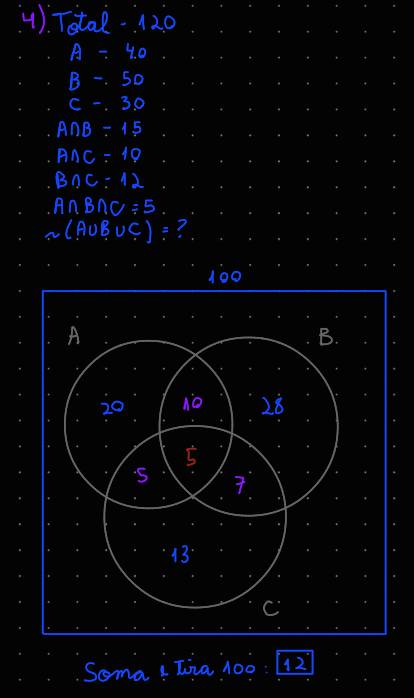 4) Total - 120
A - 40
B - 50
C - 30
A∩B - 15
A∩C - 10
B∩C - 12
A∩B∩C = 5
~(A∪B∪C) = ?
100
A
B
20
10
28
5
5
7
13
C
Soma e tira 100: 12